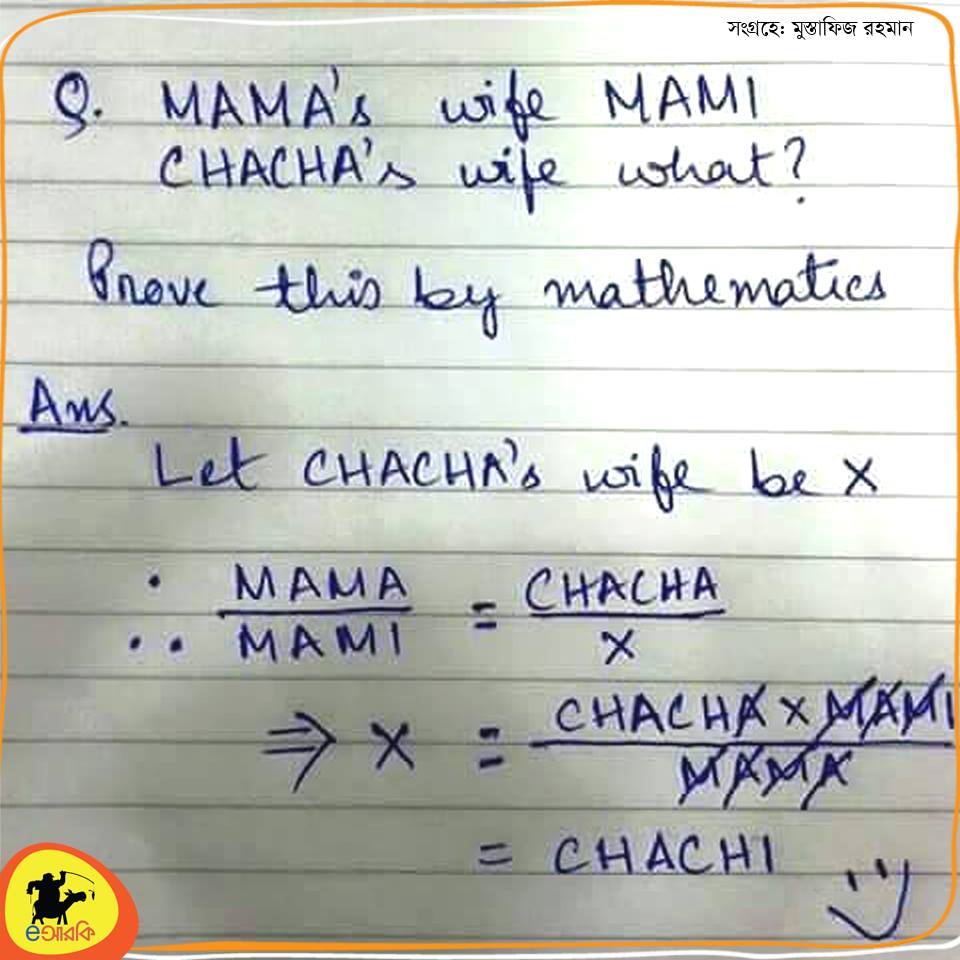 সংগ্রহে: মুস্তাফিজ রহমান
Q. MAMA's wife MAMI
CHACHA's wife what?
Prove this by mathematics
Ans.
Let CHACHA's wife be X
∴ MAMA / MAMI = CHACHA / X
⇒ X = CHACHA X MAMI / MAMA
= CHACHI
eআরকি